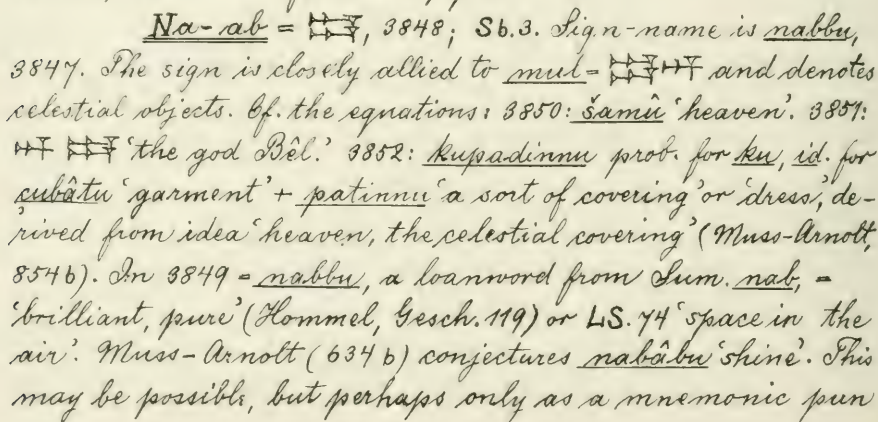 Na-ab = 𒀮, 3848; Sb.3. Sign-name is nabbu,
3847. The sign is closely allied to mul = 𒀯 and denotes
celestial objects. Cf. the equations: 3850: šamû ‘heaven’. 3851:
𒀭 𒀮 ‘the god Bêl.’ 3852: kupadinnu prob. for ku, id. for
çubâtu ‘garment’ + patinnu ‘a sort of covering’ or ‘dress’, de-
rived from idea ‘heaven, the celestial covering’ (Muss-Arnolt,
854b). In 3849 = nabbu, a loanword from Sum. nab, =
‘brilliant, pure’ (Hommel, Gesch. 119) or LS. 74 ‘space in the
air’. Muss-Arnolt (634 b) conjectures nabâbu ‘shine’. This
may be possible, but perhaps only as a mnemonic pun